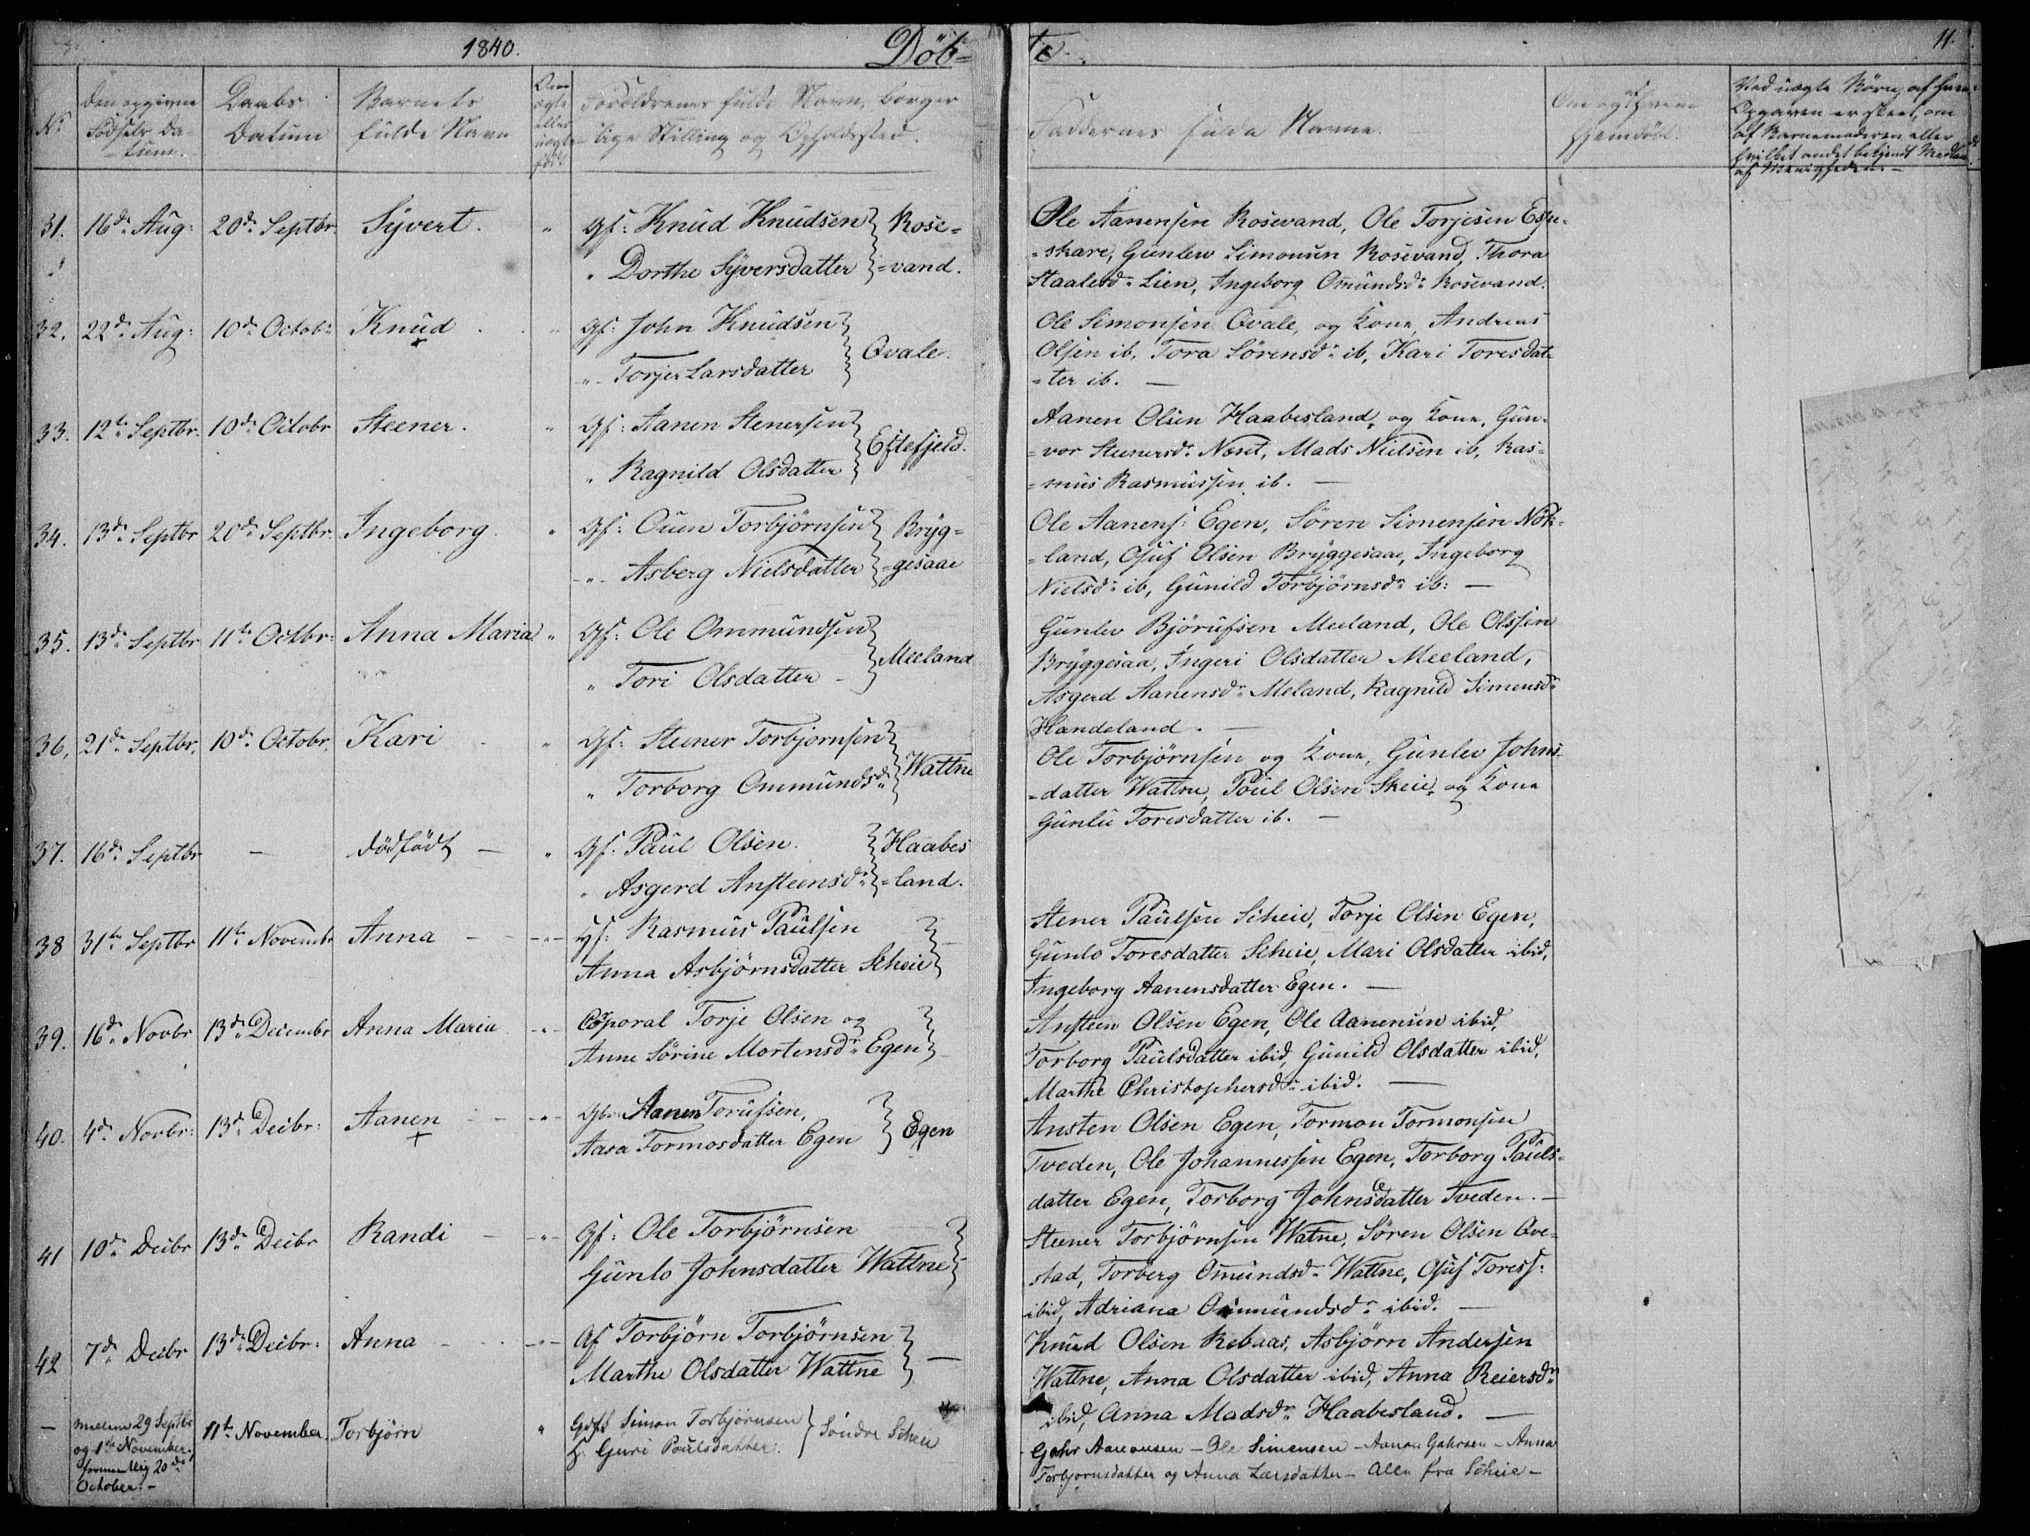 1840. Döb= te. 11.
No
Den opgivne Fødsels Da= =tum.
Daabs Datum
Barnets fulde Navn
Om ægte eller uægte født
Forældrenes fulde Navn, borger= =lige Stilling og Opholdssted.
Faddernes fulde Navne.
Om og hjemmedøbt.
Ved uægte Børn, af hvem
Opgaven er skeet, om
af Barnemoderen eller
hvilket andet bekjendt Medlem
af Menigheden.—
31. 16de Aug: 20de Septbr. Syvert. " Gf: Knud Knudsen } Rose=
" Dorthe Syversdatter } =vand.
Ole Aanensen Rosevand, Ole Torjesen Espe=
=skare, Gunlev Simonsen Rosevand, Thora
Staalesdr Lien, Ingeborg Omundsdr Rosevand.
32. 22de Aug: 10de Octobr: Knud + " Gf: John Knudsen }
" Torjer Larsdatter } Qvale.
Ole Simonsen Qvale, og Kone, Andreas
Olsen ib, Tora Sörensdr ib, Kari Toresdat=
=ter ib. —
33. 12te Septbr. 10de Octobr Steener. " Gf: Aanen Stenersen }
" Ragnild Olsdatter } Eftefjeld.
Aanen Olsen Haabesland, og Kone, Gun=
=vor Steenersdr Næset, Mads Nielsen ib, Ras=
=mus Rasmussen ib. —
34. 13de Septbr 20de Septbr. Ingeborg. " Gf: Ouen Torbjörnsen } Bryg=
" Asberg Nielsdatter } =gesaae
Ole Aanens: Egen, Sören Simensen Nök=
=land, Osuf Olsen Bryggesaae, Ingeborg
Nielsdr ib, Gunild Torbjörnsdr ib: —
35. 13de Septbr 11te Octbr: Anna Maria " Gf: Ole Ommundsen }
" Tori Olsdatter — } Meeland
Gunlev Björufsen Meeland, Ole Olssen
Bryggesaa, Ingeri Olsdatter Meeland,
Asgerd Aanensdr Meland, Ragnild Simensdr
Handeland. —
36. 21de Septbr. 10de Octobr. Kari " Gf: Steener Torbjornsen }
" Torborg Ommundsdr } Wattne
Ole Torbjörnsen og Kone, Gunlev Johns=
=datter Wattne, Poul Olsen Skeie, og Kone
Gunlu Toresdatter ib. —
37. 16de Septbr — dödfödt — " Gf: Paul Olsen. } Haabes
" Asgerd Ansteensdr } =land.
38 31te Septbr 11te Novembr Anna — " — Hf: Rasmus Paulsen }
Anna Asbjörnsdatter Scheie } —
Stener Paulsen Scheie, Torje Olsen Egen,
Gunlo Toresdatter Scheie, Mari Olsdatter ibid,
Ingeborg Aanensdatter Egen. —
39. 16de Novbr 13de Decembr Anna Maria " Corporal Torje Olsen og }
Anne Sörine Mortensdr Egen } —
Ansteen Olsen Egen, Ole Aanensen ibid,
Torborg Paulsdatter ibid, Gunild Olsdatter ibid,
Marthe Christophersdr ibid. —
40. 4de Novbr: 13de Decbr: Aanen + — " — Gbr: Aanen Torufsen, }
Aasa Tormosdatter Egen } Egen
Ansten Olsen Egen, Tormon Tormonsen
Tveden, Ole Johannessen Egen, Torborg Pauls=
datter Egen, Torborg Johnsdatter Tveden. —
41 10de Decbr 13de Decbr Randi — " — Gf: Ole Torbjörnsen }
Gunlo Johnsdatter Wattne } —
Steener Torbjörnsen Watne, Sören Olsen Qve=
stad, Torberg Omundsdr Wattne, Osuf Toress:
ibid, Adriana Ommundsdr ibid. —
42 7de Decbr 13de Decbr: Anna — " — Gf Torbjörn Torbjörnsen }
Marthe Olsdatter Wattne } —
Knud Olsen Rebaas, Asbjörn Andersen
Wattne, Anna Olsdatter ibid, Anna Reiersdr
ibid, Anna Madsdr Haabesland. —
— mellem 29 Septbr og 1ste November formentlig 20de October.— 11te November. Torbjörn " Gdsf Simon Torbjörnsen }
H. Guri Poulsdatter. } Söndre Scheie
Gahr Aanonsen — Ole Simensen — Aanon Gahrsen — Anna
Torbjornsdatter og Anna Larsdatter — Alle fra Scheie —